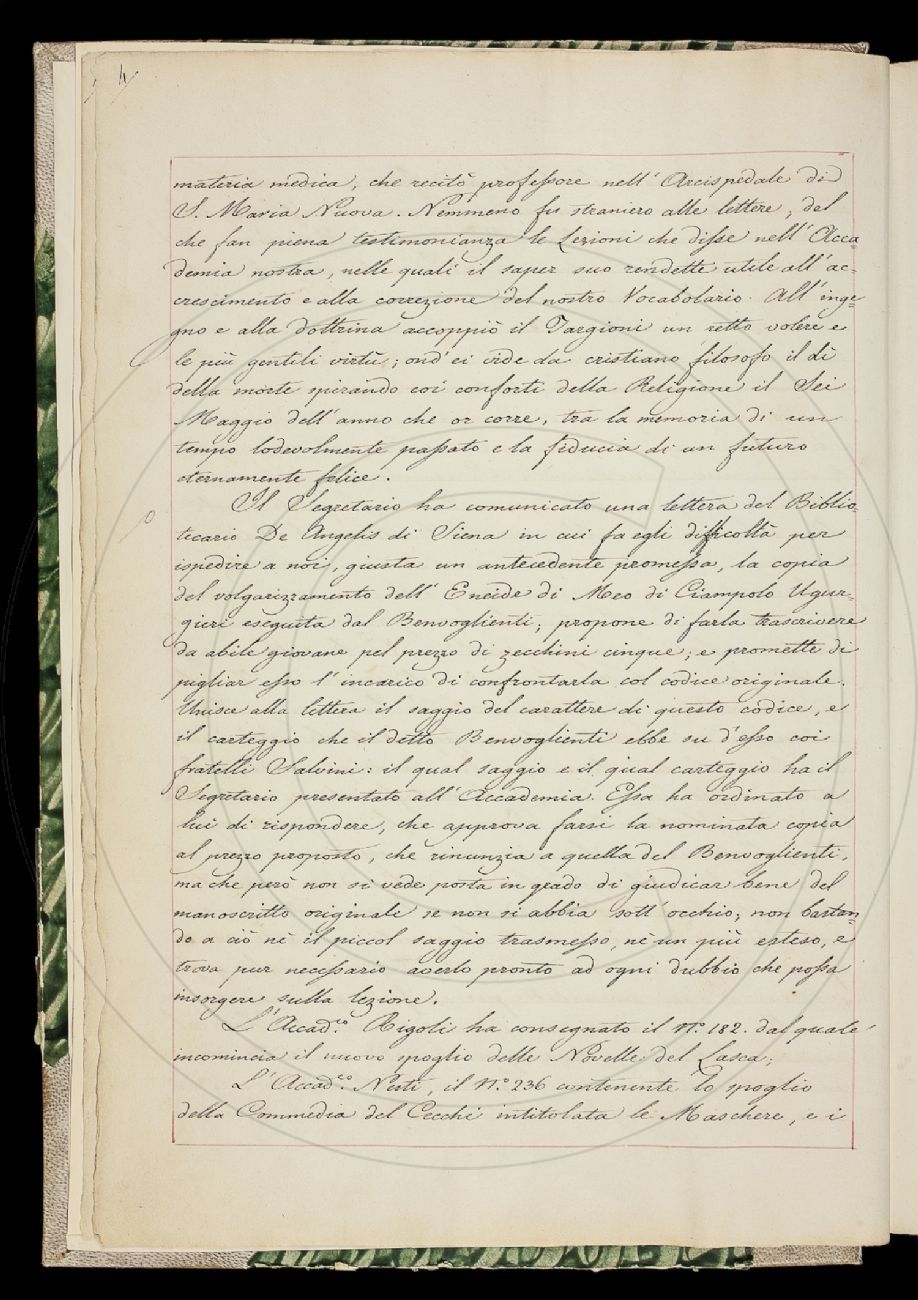 4
materia medica, che recitò professore nell' Arcispedale di
S. Maria Nuova. Nemmeno fu straniero alle lettere, del
che fan piena testimonianza le Lezioni che disse nell' Acca
demia nostra, nelle quali il saper suo rendette utile all' ac=
crescimento e alla correzione del nostro Vocabolario. All' inge=
gno e alla dottrina accoppiò il Targioni un retto volere e
le più gentili virtù; ond' ei vide da cristiano filosofo il dì
della morte spirando coi conforti della Religione il Sei
Maggio dell' anno che or corre, tra la memoria di un
tempo lodevolmente passato e la fiducia di un futuro
eternamente felice.
Il Segretario ha comunicato una lettera del Biblio=
tecario De Angelis di Siena in cui fa egli difficoltà per
ispedire a noi, giusta un antecedente promessa, la copia
del volgarizzamento dell' Eneide di Meo di Ciampolo Ugur=
gieri eseguita dal Benvoglienti; propone di farla trascrivere
da abile giovane pel prezzo di zecchini cinque; e promette di
pigliar esso l' incarico di confrontarla col codice originale.
Unisce alla lettera il saggio del carattere di questo codice, e
il carteggio che il detto Benvoglienti ebbe su d' esso coi
fratelli Salvini: il qual saggio e il qual carteggio ha il
Segretario presentato all' Accademia. Essa ha ordinato a
lui di rispondere, che approva farsi la nominata copia
al prezzo proposto, che rinunzia a quella del Benvoglienti,
ma che però non si vede posta in grado di giudicar bene del
manoscritto originale se non si abbia sott' occhio; non bastan=
do a ciò nè il piccol saggio trasmesso, nè un più esteso, e
trova pur necessario averlo pronto ad ogni dubbio che possa
insorgere sulla lezione.
L' Accad.co Rigoli ha consegnato il N.° 182. dal quale
incomincia il nuovo spoglio delle Novelle del Lasca;
L' Accad.co Nesti, il N.° 236 contenente lo spoglio
della Commedia del Cecchi intitolata le Maschere, e i